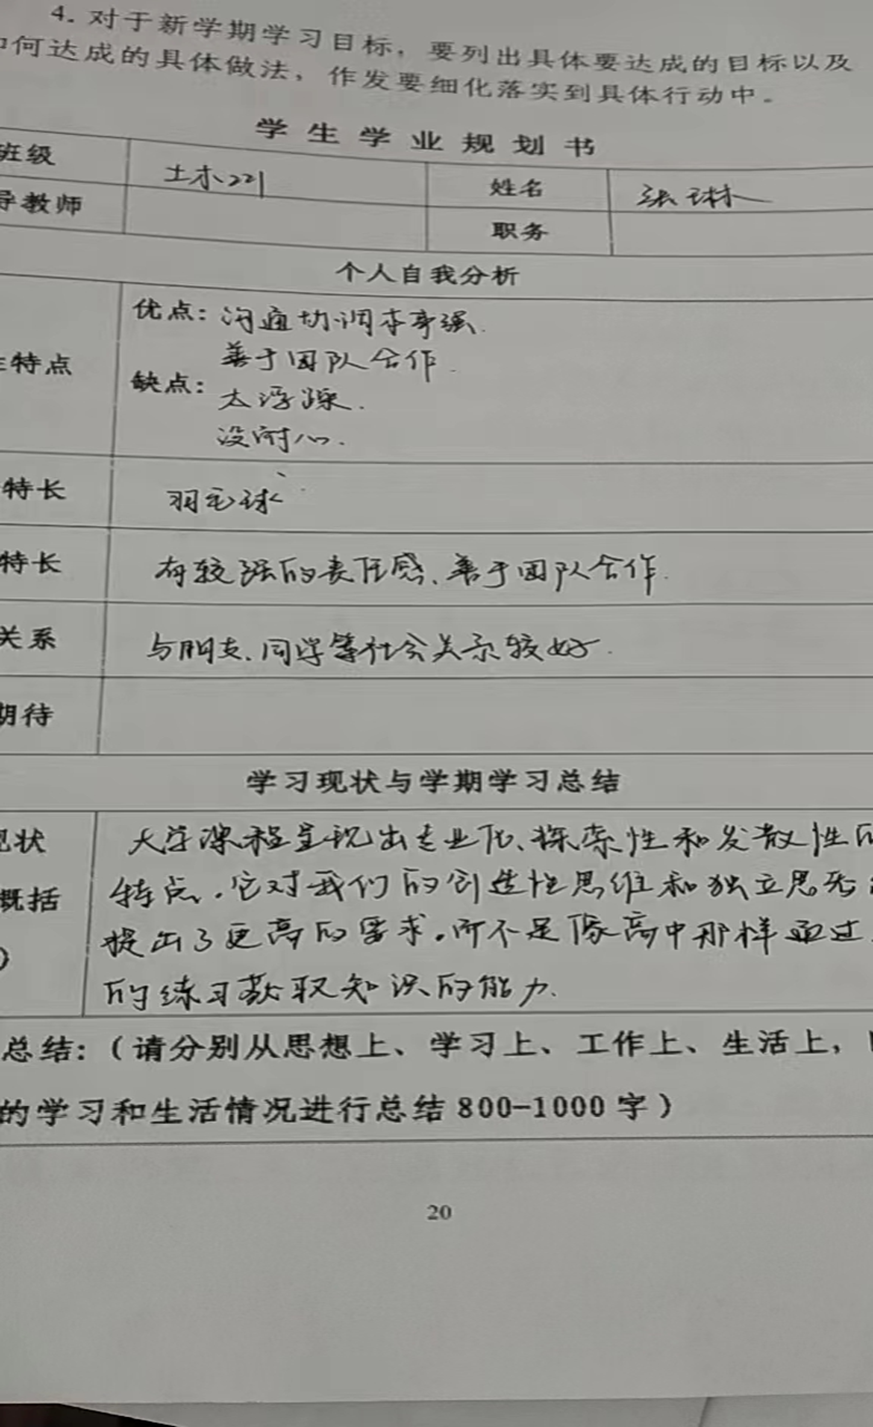 4. 对于新学期学习目标，要列出具体要达成的目标以及
何达成的具体做法，作发要细化落实到具体行动中。
学生学业规划书
班级 土木221 姓名 张琳
导教师 职务
个人自我分析
优点：沟通协调本事强.
善于团队合作.
特点
缺点：太浮躁.
没耐心.
特长 羽毛球
特长 有较强的责任感、善于团队合作.
关系 与朋友、同学等社会关系较好.
期待
学习现状与学期学习总结
现状 大学课程呈现出专业化、探索性和发散性的
概括 特点，它对我们的创造性思维和独立思考
) 提出了更高的要求。而不是像高中那样通过
的练习获取知识的能力.
总结：（请分别从思想上、学习上、工作上、生活上，
的学习和生活情况进行总结 800-1000 字）
20